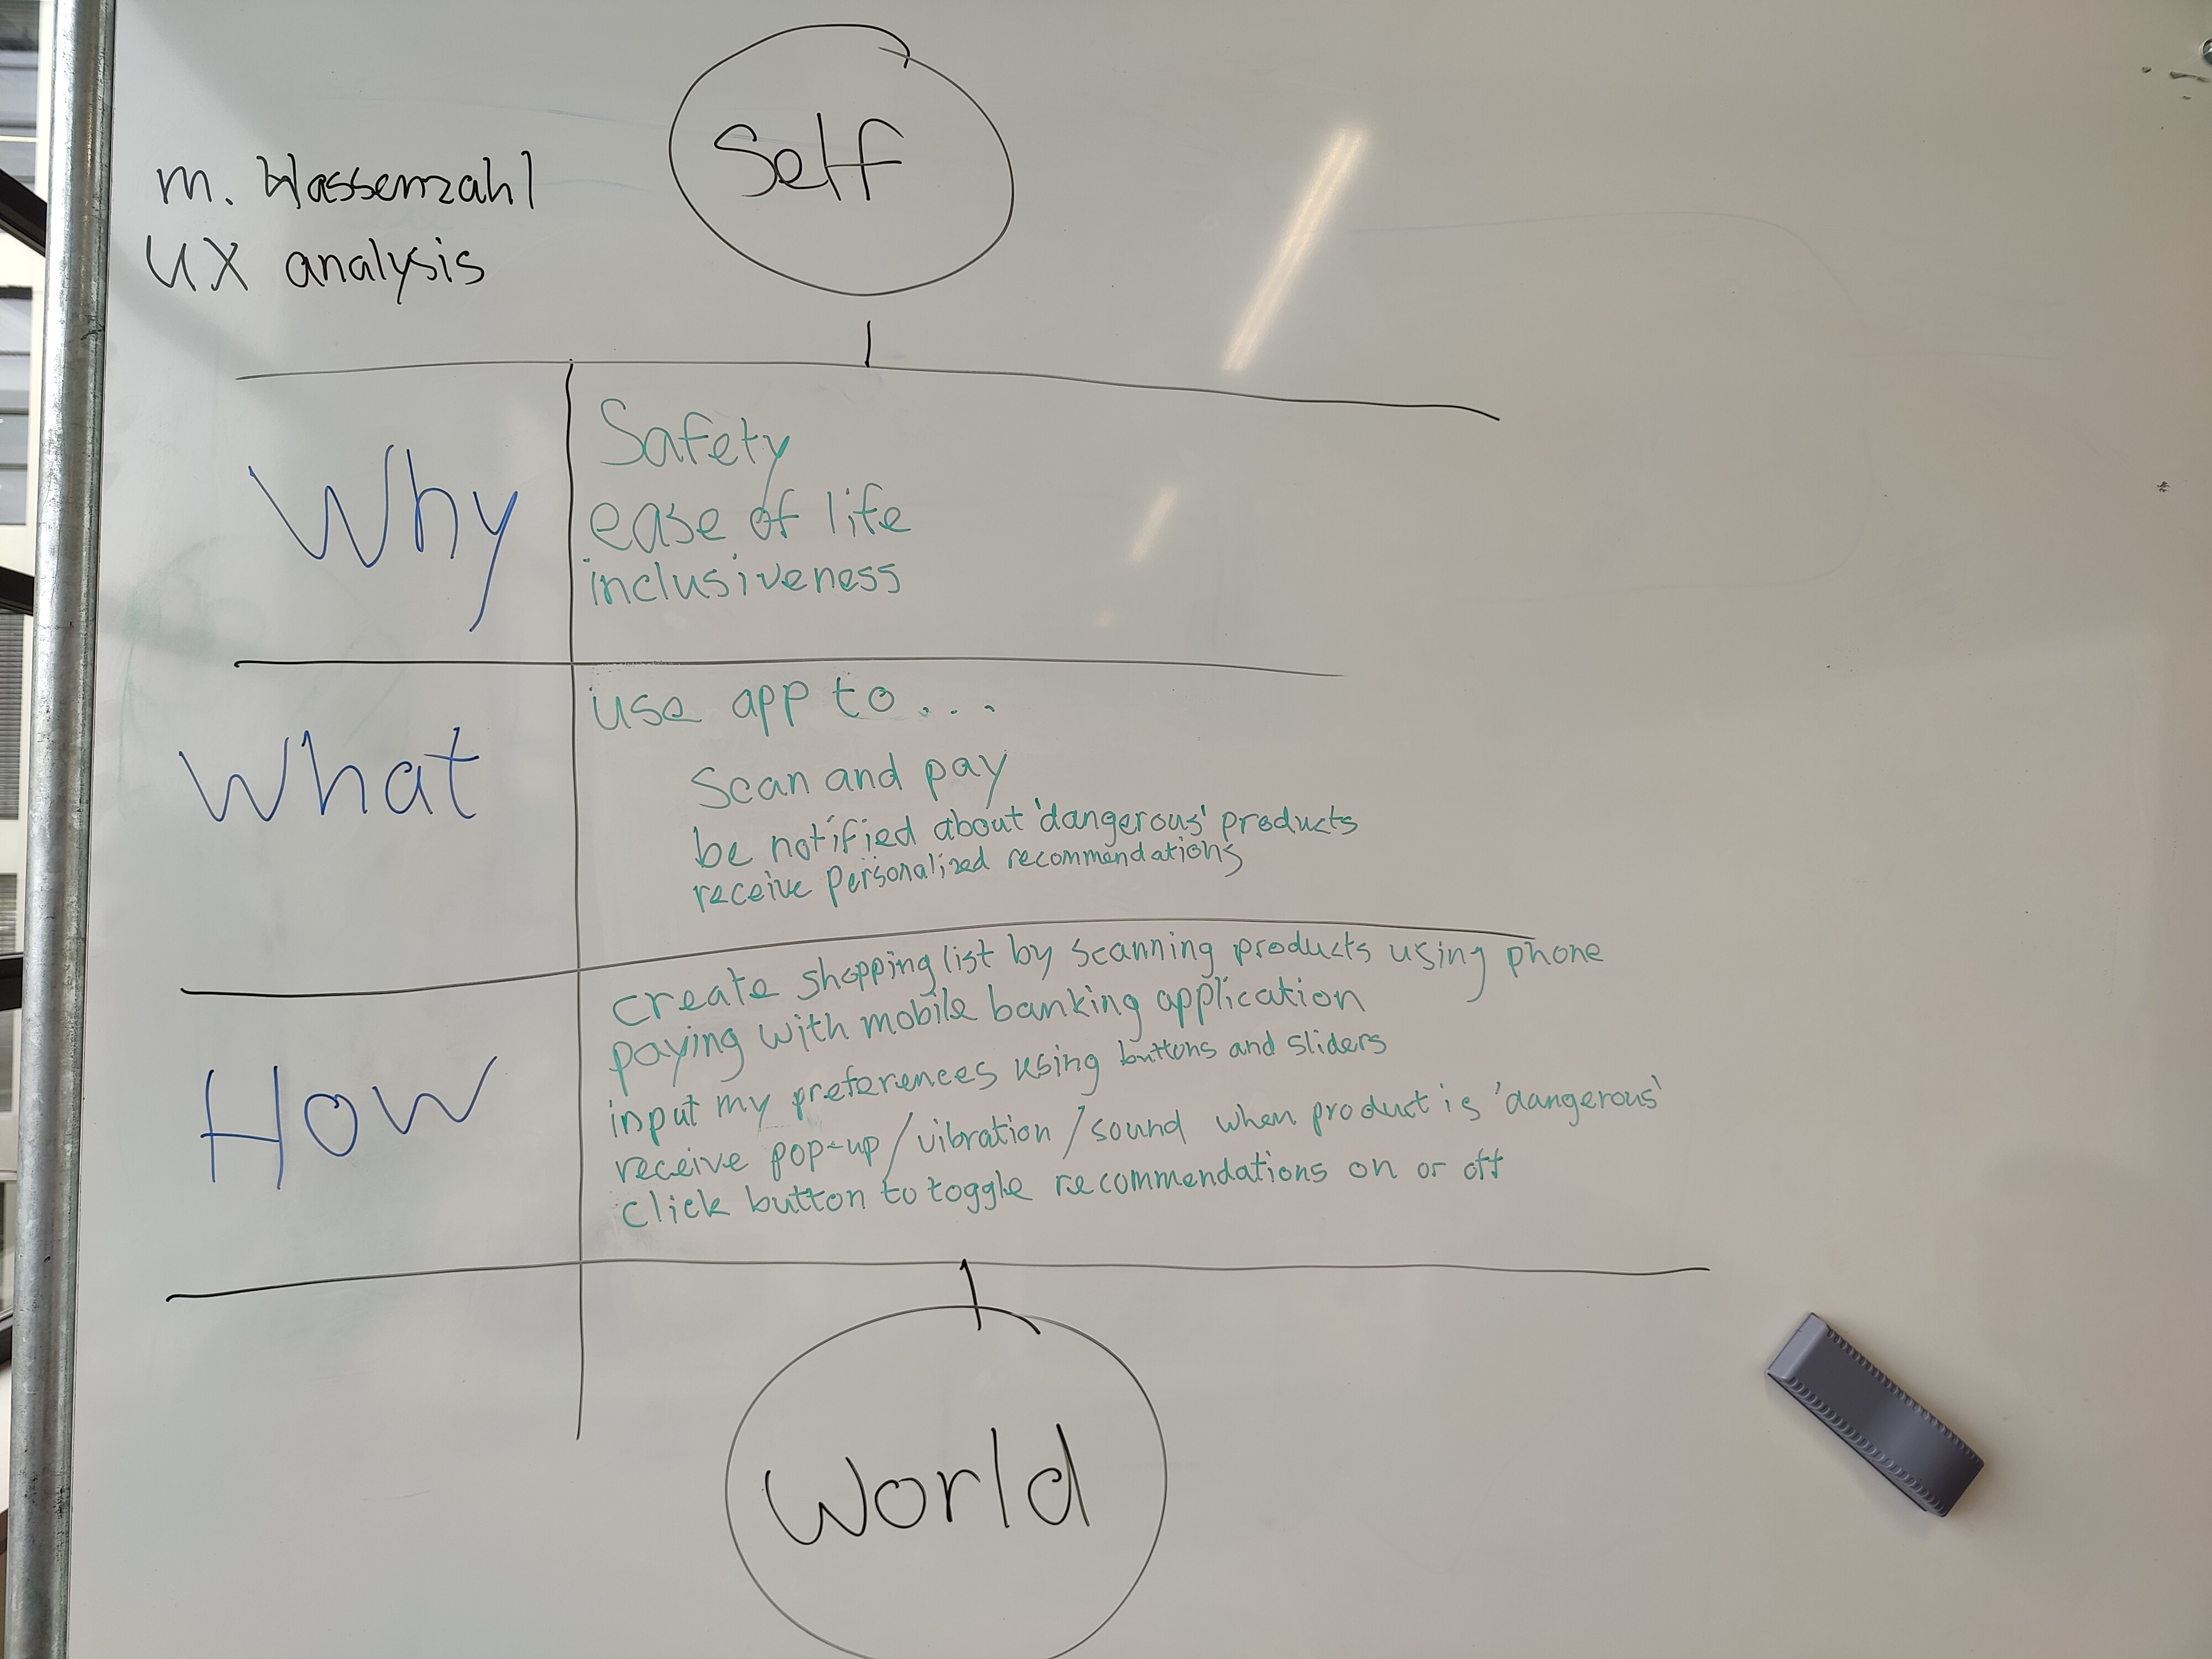 Self
M. Hassenzahl
UX analysis
Why
Safety
ease of life
inclusiveness
What
use app to...
Scan and pay
be notified about 'dangerous' products
receive personalized recommendations
How
create shopping list by scanning products using phone
paying with mobile banking application
input my preferences using buttons and sliders
receive pop-up/vibration/sound when product is 'dangerous'
click button to toggle recommendations on or off
World